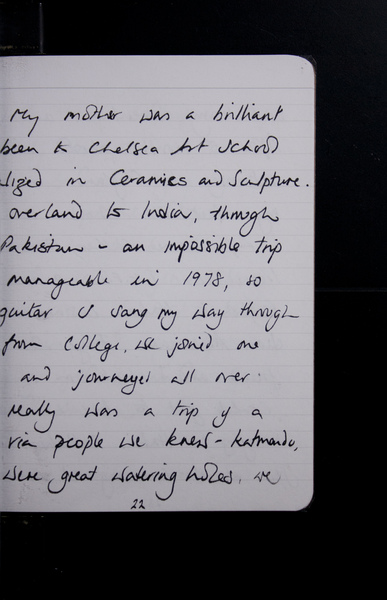 My mother was a brilliant
been to Chelsea Art School
lized in Ceramics and Sculpture.
overland to India, through
Pakistan - an impossible trip
manageable in 1978, so
guitar & sang my way through
from College, we joined one
and journeyed all over.
really was a trip of a
via people we knew - Katmandu,
were great watering holes, we
22